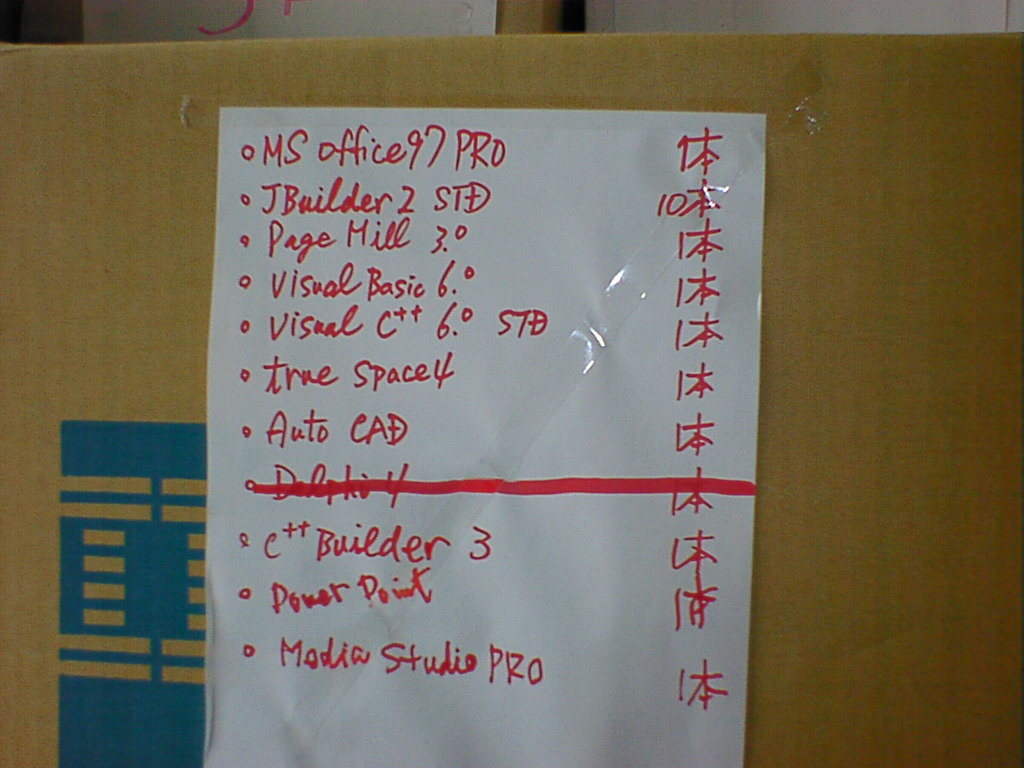 ○ MS office97 PRO 1本
○ JBuilder2 STD 10本
○ Page Mill 3.0 1本
○ Visual Basic 6.0 1本
○ Visual C++ 6.0 STD 1本
○ true space4 1本
○ Auto CAD 1本
○ Delphi 4 1本
○ C++ Builder 3 1本
○ Power Point 1本
○ Media Studio PRO 1本